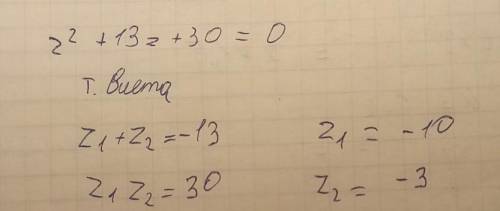 z² + 13z + 30 = 0
т. Виета
z₁ + z₂ = -13
z₁ z₂ = 30
z₁ = -10
z₂ = -3